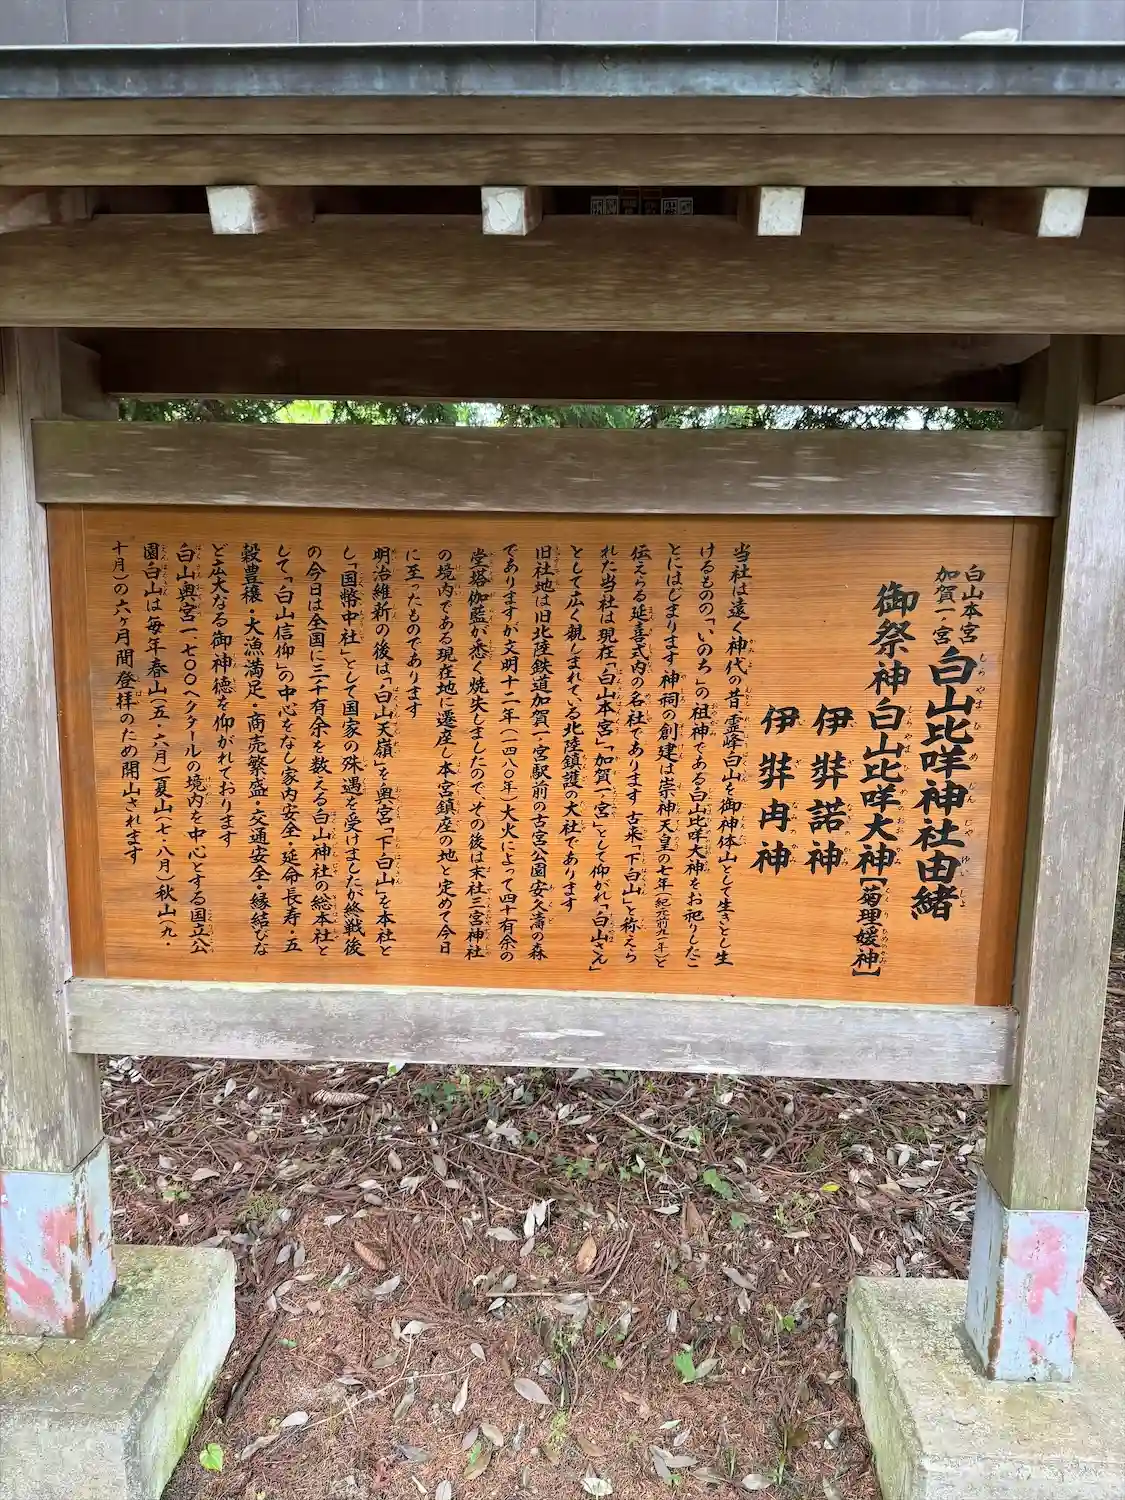 白山本宮
加賀一ノ宮
白山比咩神社由緒
御祭神 白山比咩大神[菊理媛神]
伊弉諾神
伊弉冉神
当社は遠く神代の昔霊峰白山を御神体山として生きとし生
けるものの「いのち」の祖神である白山比咩大神をお祀りしたこ
とにはじまります神祠の創建は崇神天皇の七年(紀元前九一年)と
伝えらる延喜式内の名社であります古来「下白山」と称えら
れた当社は現在「白山本宮」「加賀一ノ宮」として仰がれ「白山さん」
として広く親しまれている北陸鎮護の大社であります
旧社地は旧北陸鉄道加賀一宮駅前の古宮公園安久濤の森
でありますが文明十二年(一四八〇年)大火によって四十有余の
堂塔伽藍が悉く焼失しましたので、その後は末社三宮神社
の境内である現在地に遷座し本宮鎮座の地と定めて今日
に至ったものであります
明治維新の後は「白山天嶺」を奥宮「下白山」を本社と
し「国幣中社」として国家の殊遇を受けましたが終戦後
の今日は全国に三千有余を数える白山神社の総本社と
して「白山信仰」の中心をなし家内安全・延命長寿・五
穀豊穣・大漁満足・商売繁盛・交通安全・縁結びな
ど広大なる御神徳を仰がれております
白山奥宮一、七〇〇ヘクタールの境内を中心とする国立公
園白山は毎年春山(五・六月)夏山(七・八月)秋山(九・
十月)の六ヶ月間登拝のため開山されます